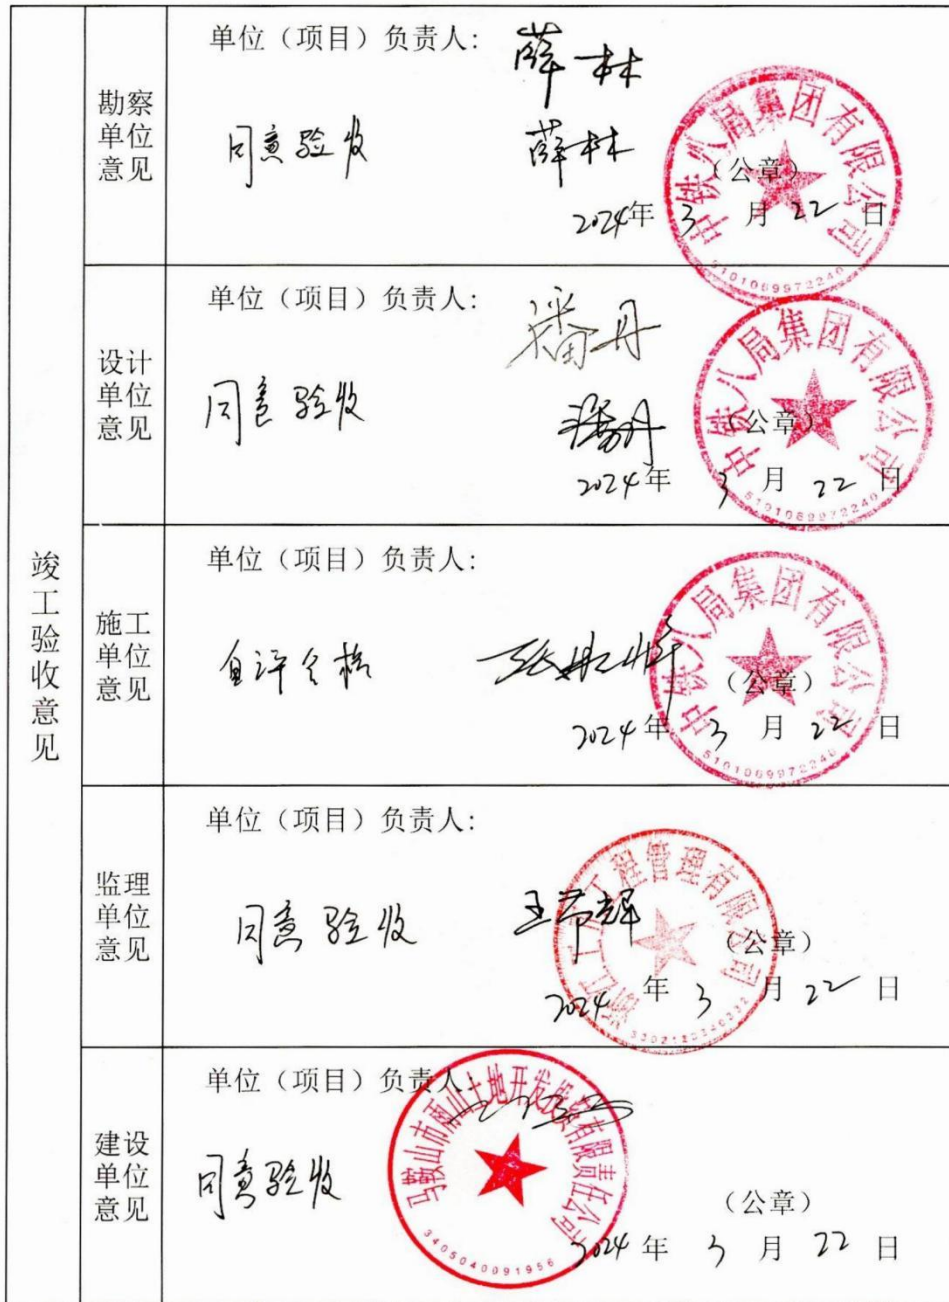 竣工验收意见
勘察单位意见
单位（项目）负责人：
薛林
同意验收
薛林
（公章）
2024年 3 月 22 日
中铁八局集团有限公司
5101069972240
设计单位意见
单位（项目）负责人：
潘丹
同意验收
潘丹
（公章）
2024年 3 月 22 日
中铁八局集团有限公司
5101069972240
施工单位意见
单位（项目）负责人：
自评合格
（公章）
2024年 3 月 22 日
中铁八局集团有限公司
5101069972240
监理单位意见
单位（项目）负责人：
同意验收
（公章）
2024 年 3 月 22 日
工程管理有限公司
建设单位意见
单位（项目）负责人：
同意验收
（公章）
2024 年 3 月 22 日
马鞍山市雨山土地开发投资有限责任公司
3405040091956